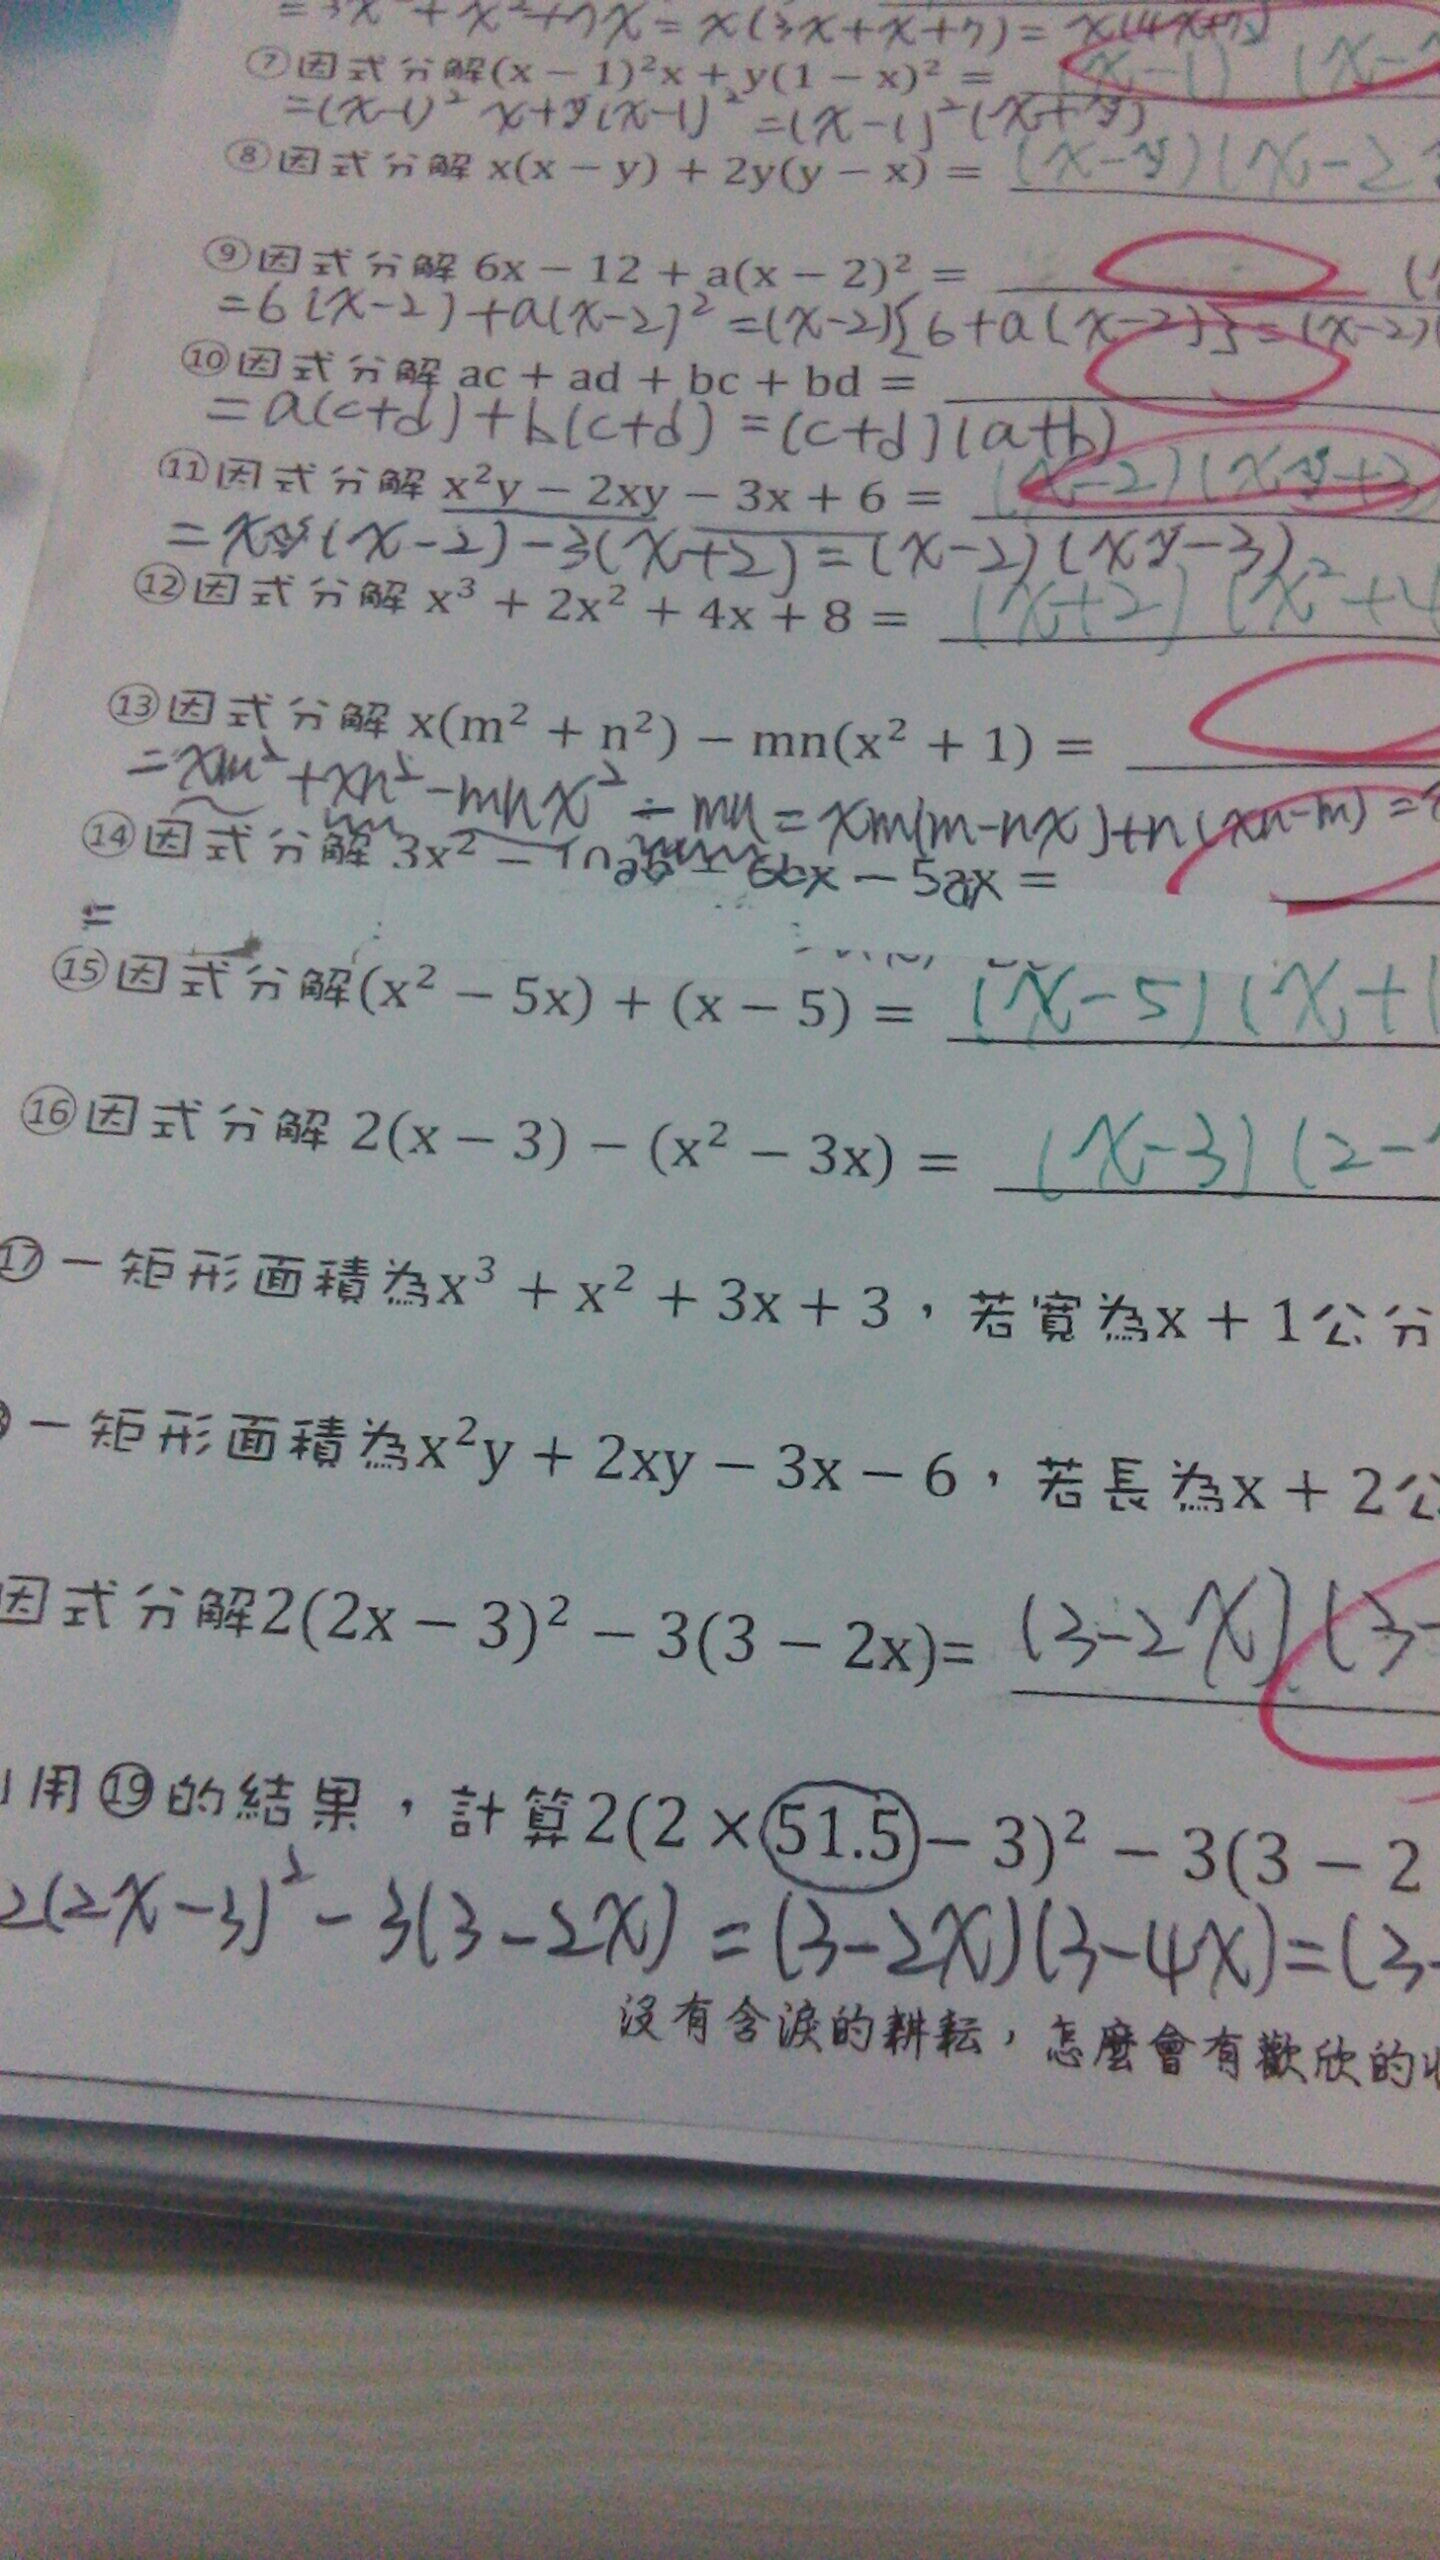 = 3x² + x² + 7x = x(3x+x+7) = x(4x+7)
⑦因式分解(x − 1)²x + y(1 − x)² = (x-1) (x-
=(x-1)² x+y(x-1)² =(x-1)²(x+y)
⑧因式分解 x(x − y) + 2y(y − x) = (x-y)(x-2
⑨因式分解 6x − 12 + a(x − 2)² =
=6(x-2)+a(x-2)² =(x-2){6+a(x-2)}=(x-2)(
⑩因式分解 ac + ad + bc + bd =
=a(c+d)+b(c+d)=(c+d)(a+b)
⑪因式分解 x²y − 2xy − 3x + 6 = (x-2)(xy+3)
=xy(x-2)-3(x+2)=(x-2)(xy-3)
⑫因式分解 x³ + 2x² + 4x + 8 = (x+2)(x²+4
⑬因式分解 x(m² + n²) − mn(x² + 1) =
=xm²+xn²-mnx²-mn=xm(m-nx)+n(xn-m)=
⑭因式分解 3x² − 10ab 6bx − 5ax =
=
⑮因式分解(x² − 5x) + (x − 5) = (x-5)(x+1
⑯因式分解 2(x − 3) − (x² − 3x) = (x-3)(2-
⑰一矩形面積為x³ + x² + 3x + 3，若寬為x + 1公分
一矩形面積為x²y + 2xy − 3x − 6，若長為x + 2公
因式分解2(2x − 3)² − 3(3 − 2x)= (3-2x)(3-
用⑲的結果，計算2(2 × 51.5 − 3)² − 3(3 − 2
2(2x-3)²-3(3-2x)=(3-2x)(3-4x)=(3-
沒有含淚的耕耘，怎麼會有歡欣的